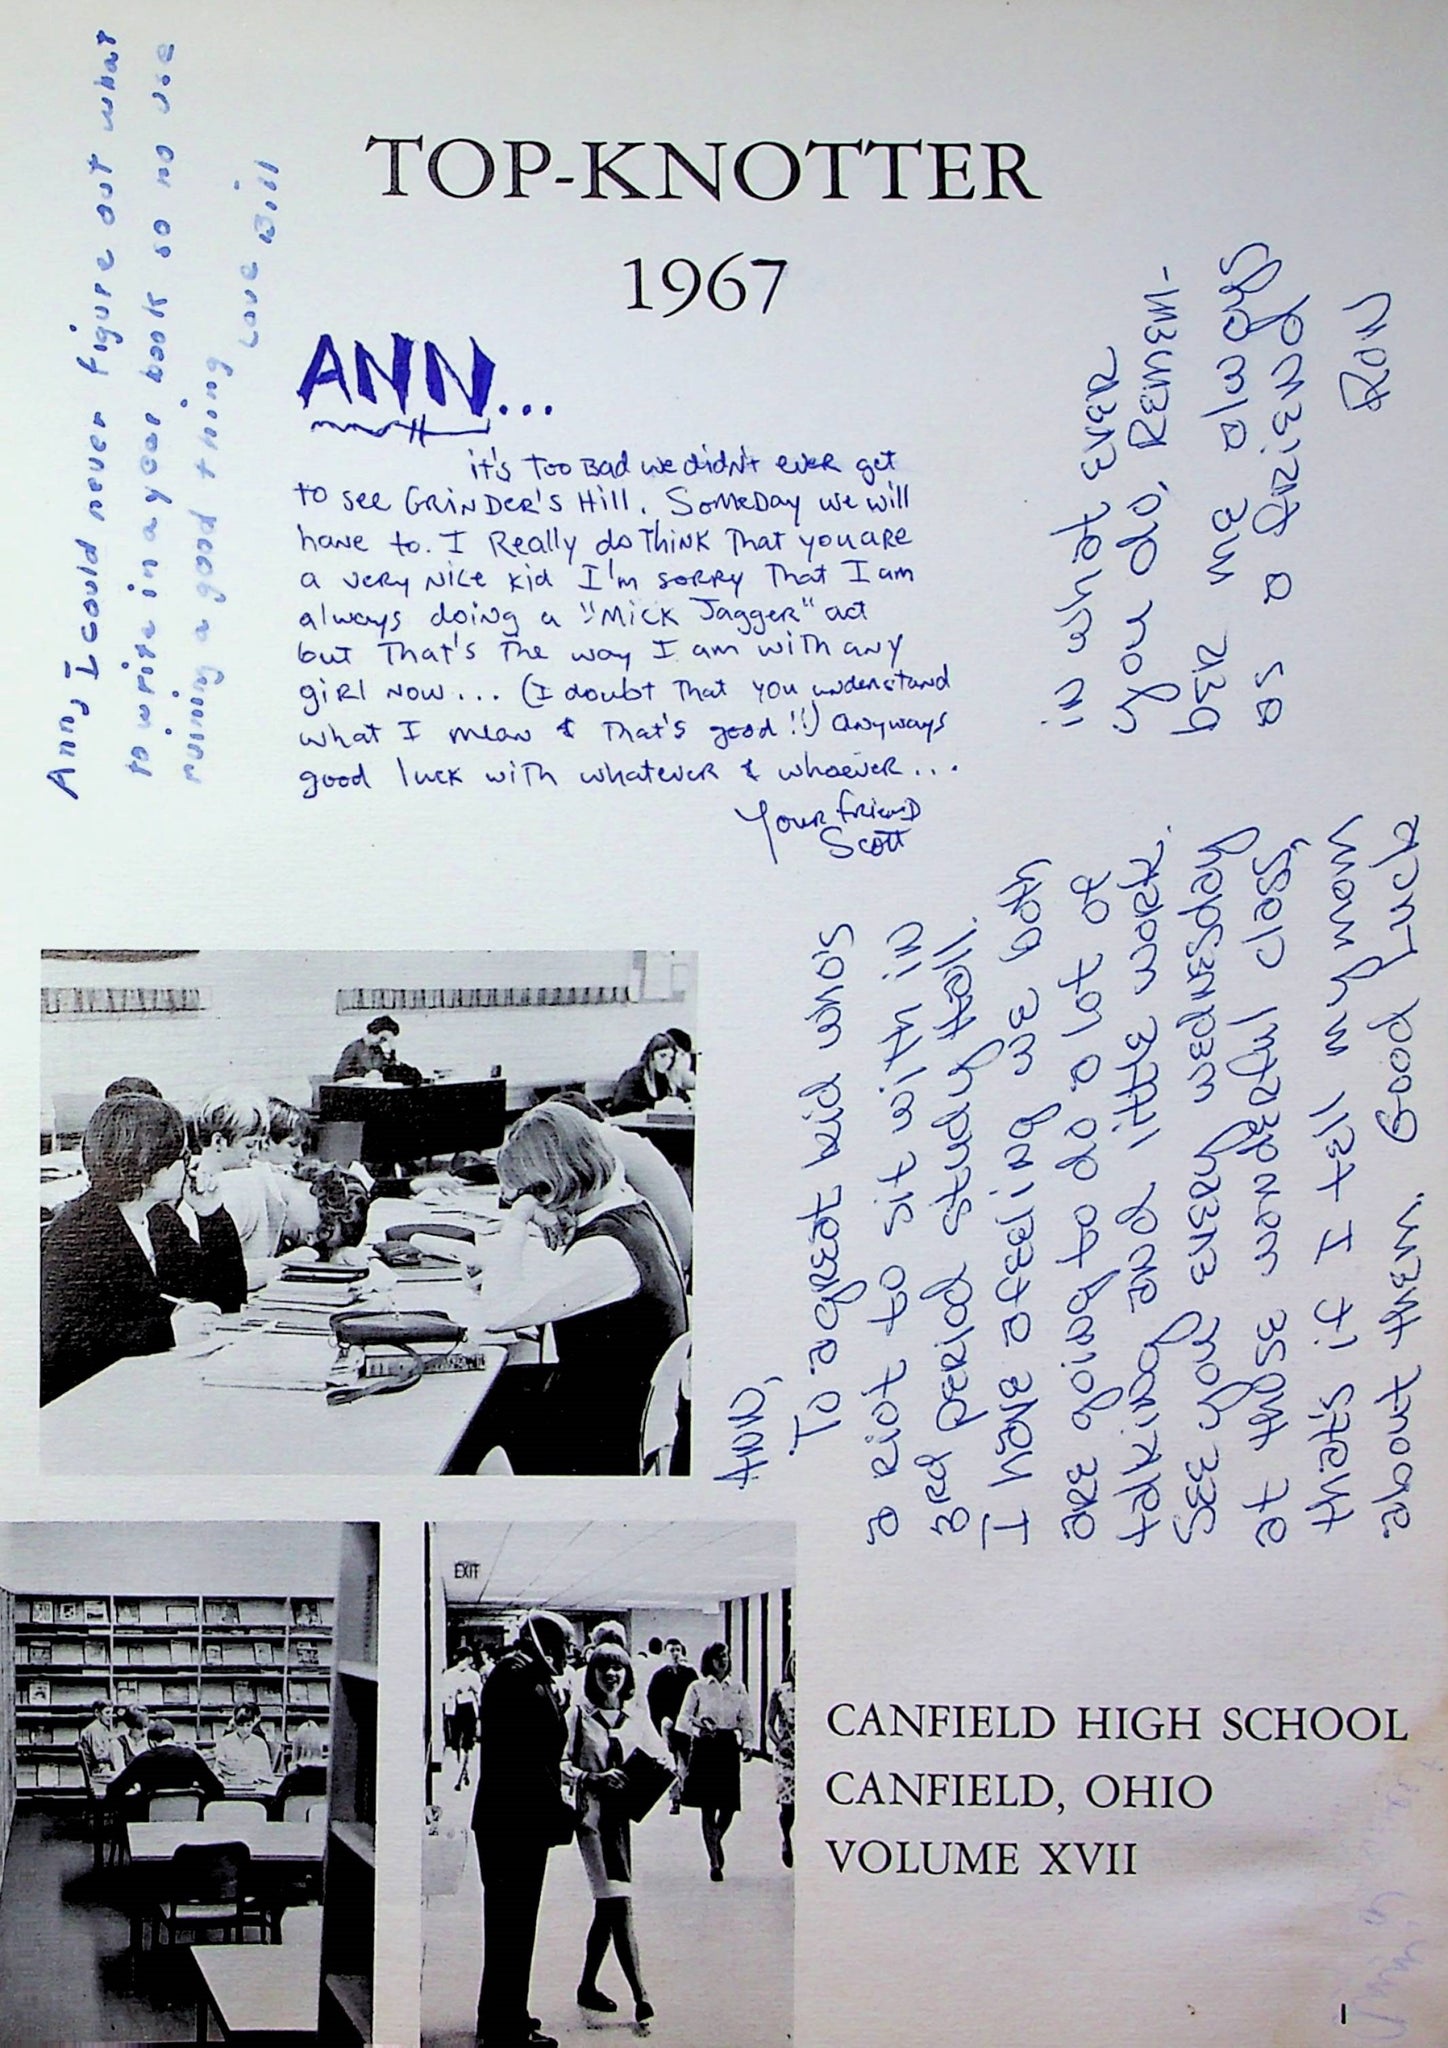 TOP-KNOTTER
1967
Ann, I could never figure out what
to write in a year book so no use
ruining a good thing
Love Bill
ANN...
it's too bad we didn't ever get
to see Grinder's Hill. Someday we will
have to. I Really do think That you are
a very nice kid I'm sorry That I am
always doing a "Mick Jagger" act
but That's The way I am with any
girl now... (I doubt That you understand
what I mean & That's good!!) anyways
good luck with whatever & whoever...
Your friend
Scott
Ann,
To a great kid who's
a riot to sit with in
3rd period study hall.
I have a feeling we both
are going to do a lot of
talking and little work.
See you every wednesday
at those wonderful class,
that is if I tell my mom
about them. Good Luck
in what ever
you do, Remem-
ber me always
as a friend
Ron
EXIT
CANFIELD HIGH SCHOOL
CANFIELD, OHIO
VOLUME XVII